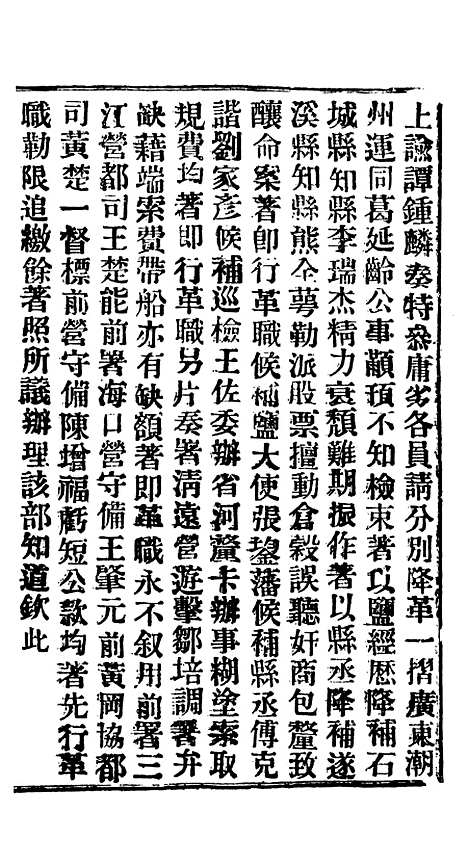 上諭譚鍾麟奏特叅庸劣各員請分別降革一摺廣東潮
州運同葛延齡公事顢頇不知檢束著以鹽經歷降補石
城縣知縣李瑞杰精力衰頹難期振作著以縣丞降補遂
溪縣知縣熊全萼勒派股票擅動倉穀誤聽奸商包釐致
釀命案著卽行革職候補鹽大使張鋆藩候補縣丞傅克
諧劉家彥候補巡檢王佐委辦省河釐卡辦事糊塗索取
規費均著卽行革職另片奏署淸遠營遊擊鄒培調署弁
缺藉端索費帶船亦有缺額著卽革職永不叙用前署三
江營都司王楚能前署海口營守備王肇元前黃岡協都
司黃楚一督標前營守備陳增福虧短公款均著先行革
職勒限追繳餘著照所議辦理該部知道欽此